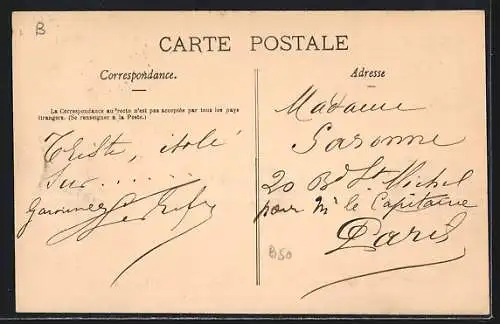 B
CARTE POSTALE
Correspondance.
La Correspondance au recto n'est pas acceptée par tous les pays
étrangers. (Se renseigner à la Poste.)
Triste, isolé
sur......
Adresse
Madame
Garonne
20 Bd St Michel
pour Mr le Capitaine
Paris
B50